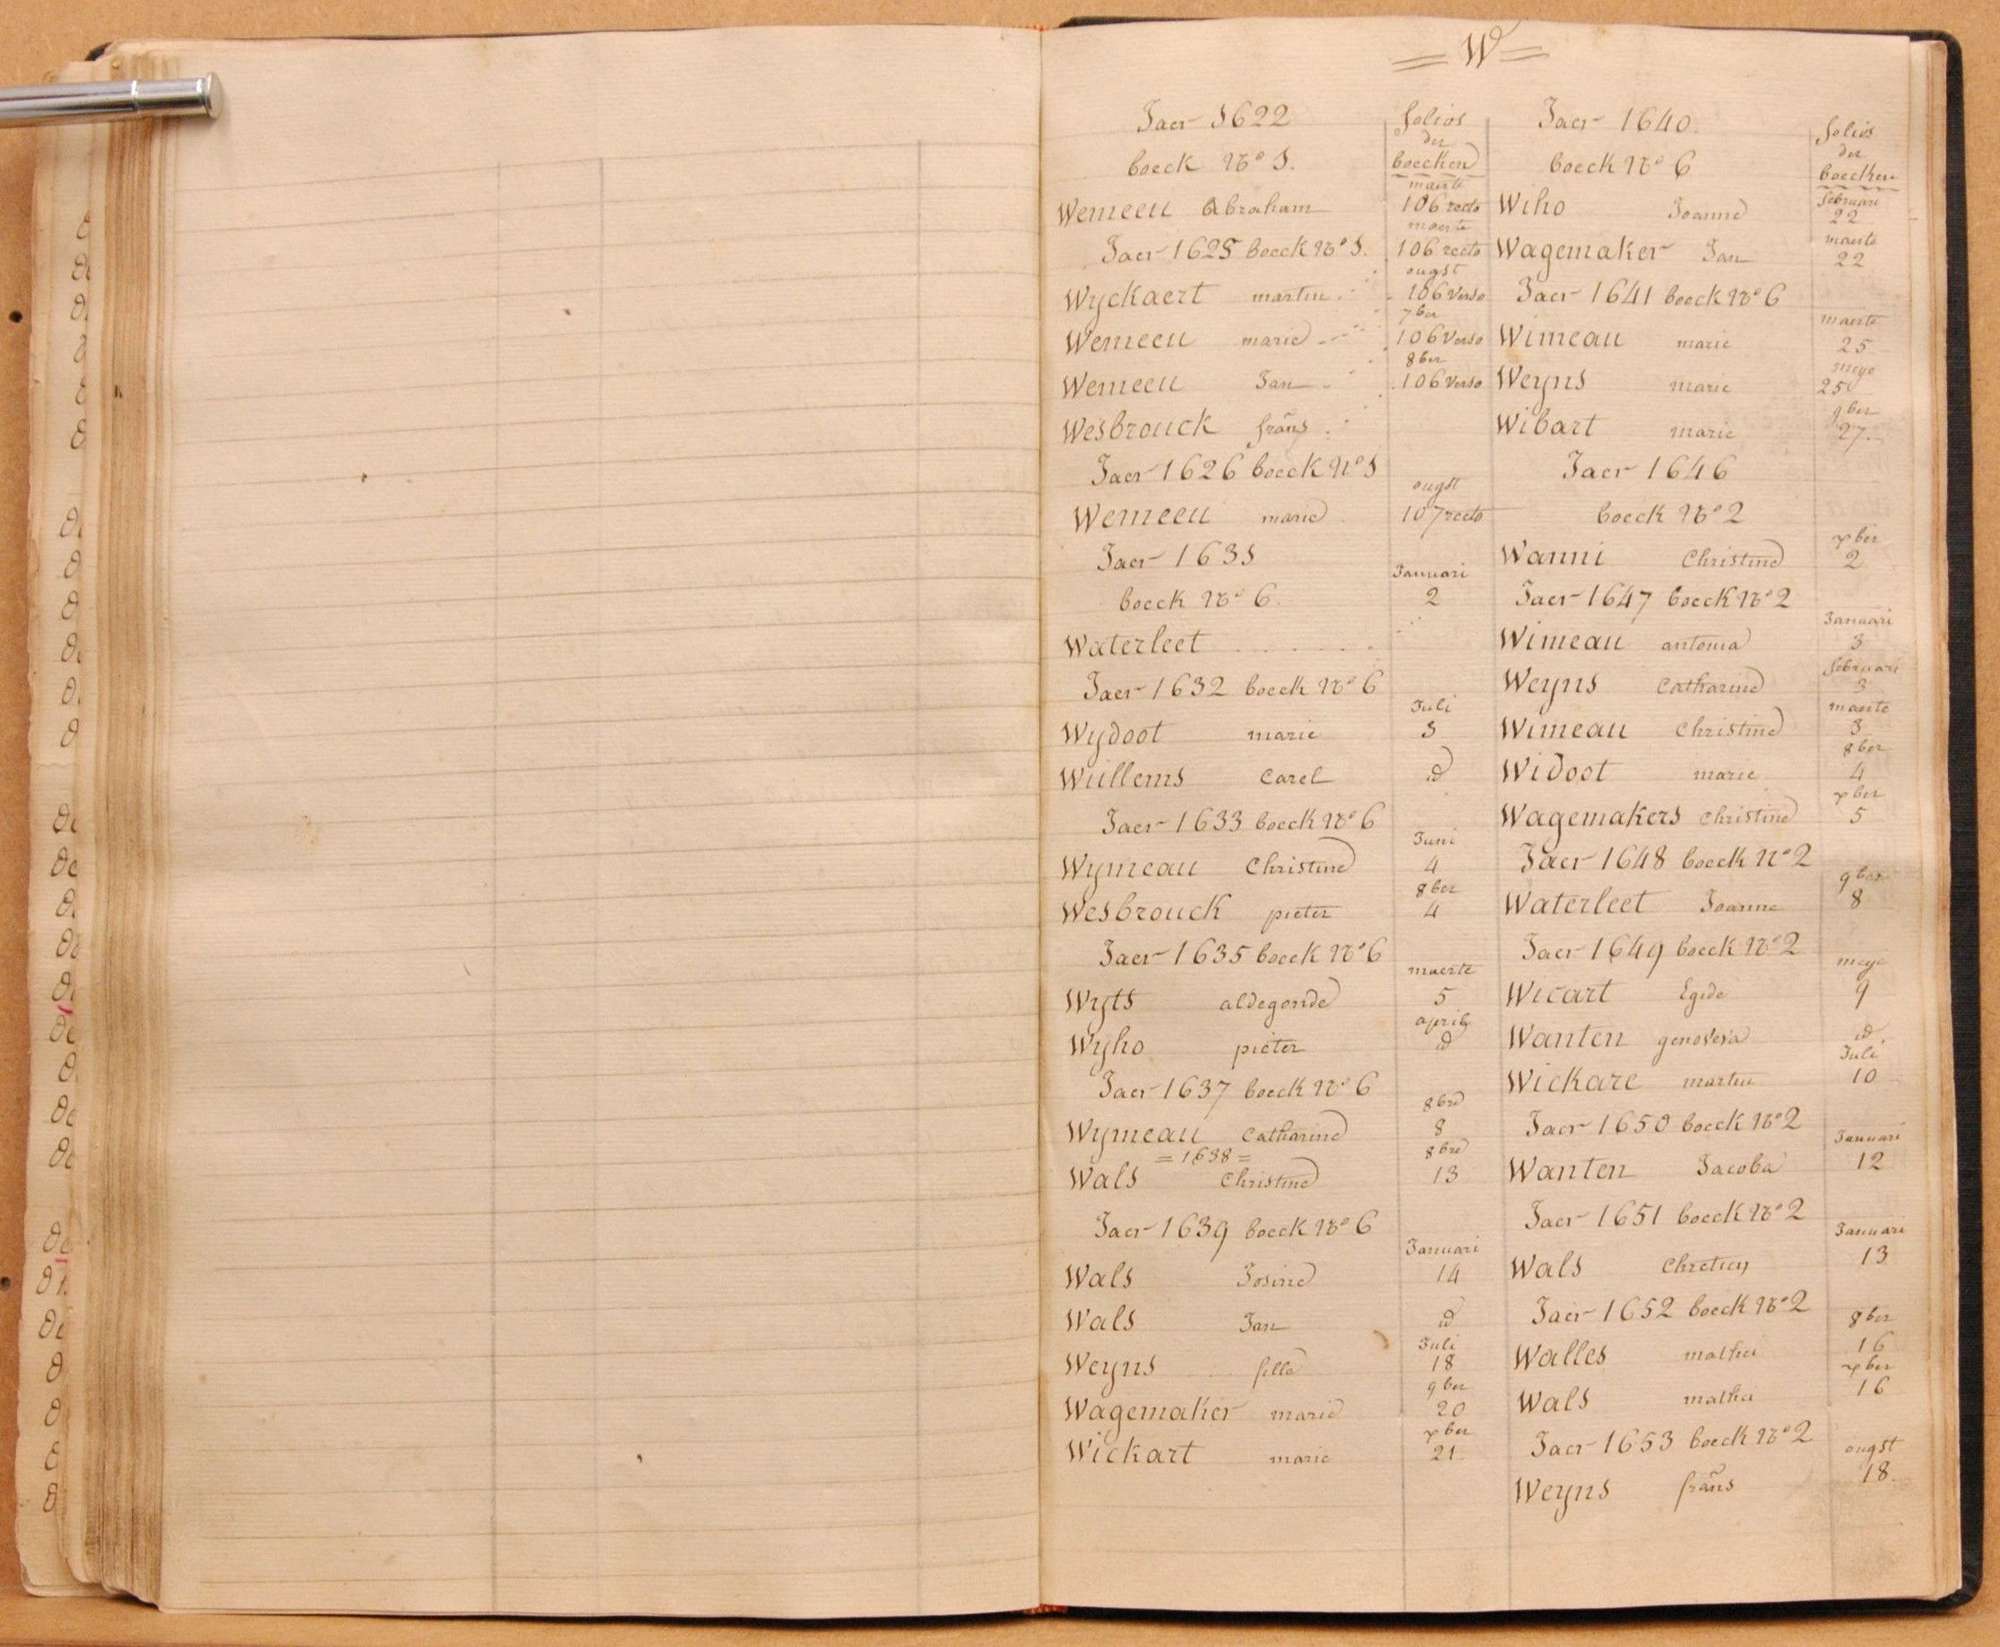 = W =
Jaer 1622
folios
der
boecken
boeck No 1.
maerte
Wemeeu Abraham 106 recto
maerte
Jaer 1625 boeck No 1. 106 recto
ougst
Wyckaert martin 106 verso
7ber
Wemeeu marie 106 verso
8ber
Wemeeu Jan 106 verso
Wesbrouck frans
Jaer 1626 boeck No 1
ougst
Wemeeu marie 107 recto
Jaer 1631
Januari
boeck No 6. 2
Waterleet
Jaer 1632 boeck No 6
Juli
Wydoot marie 3
Wullems Carel id
Jaer 1633 boeck No 6
Juni
Wymeau Christine 4
8ber
Wesbrouck pieter 4
Jaer 1635 boeck No 6
maerte
Wyts aldegonde 5
april
Wyho pieter id
Jaer 1637 boeck No 6
8bre
Wymeau Catharine 8
= 1638 =
8bre
Wals Christine 13
Jaer 1639 boeck No 6
Januari
Wals Josine 14
Wals Jan id
Juli
Weyns fille 18
9ber
Wagemaker marie 20
xber
Wickart marie 21
Jaer 1640.
folios
der
boecken
boeck No 6
februari
Wiho Joanne 22
maerte
Wagemaker Jan 22
Jaer 1641 boeck No 6
maerte
Wimeau marie 25
meye
Weyns marie 25
9ber
Wibart marie 27.
Jaer 1646
boeck No 2
xber
Wanni Christine 2
Jaer 1647 boeck No 2
Januari
Wimeau antonia 3
februari
Weyns Catharine 3
maerte
Wimeau Christine 3
8ber
Widoot marie 4
xber
Wagemakers Christine 5
Jaer 1648 boeck No 2
9ber
Waterleet Joanne 8
Jaer 1649 boeck No 2
meye
Wicart Egide 9
Wanten genoveva id
Juli
Wickare martin 10
Jaer 1650 boeck No 2
Januari
Wanten Jacoba 12
Jaer 1651 boeck No 2
Januari
Wals Chretien 13
Jaer 1652 boeck No 2
8ber
Walles mathei 16
xber
Wals mathei 16
Jaer 1653 boeck No 2
ougst
Weyns frans 18.